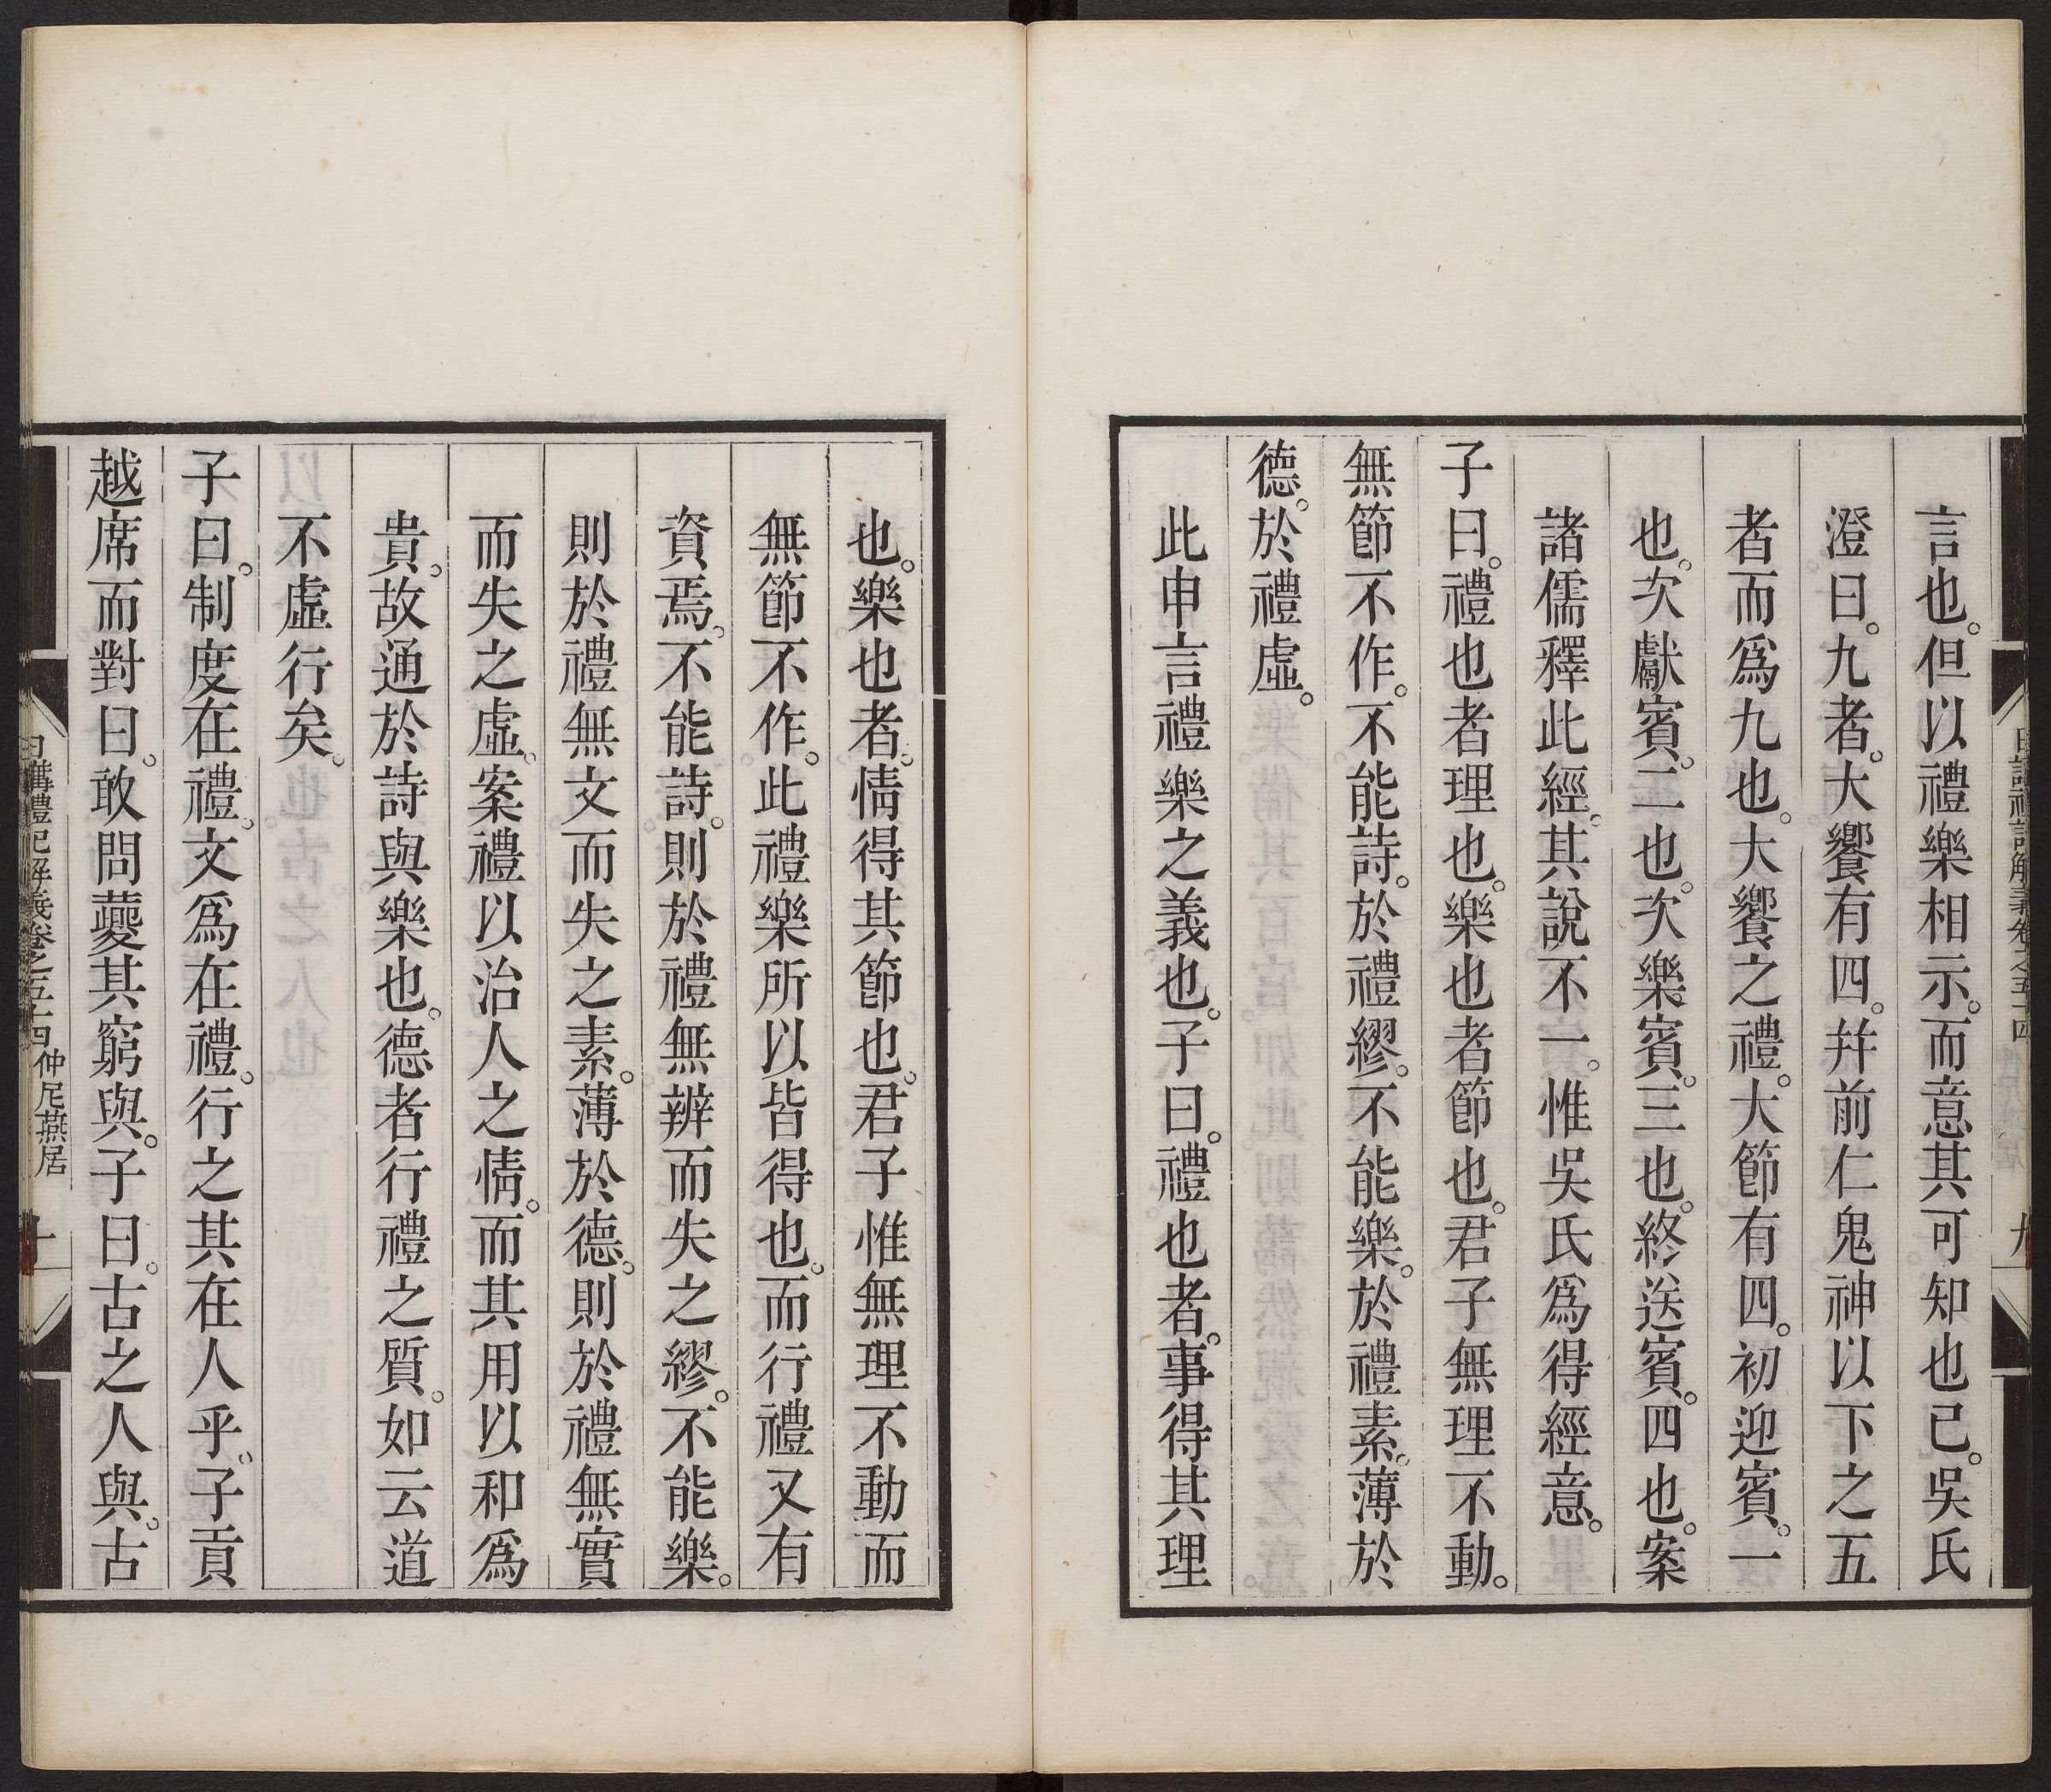 言也。但以禮樂相示。而意其可知也已。吳氏
澄曰。九者。大饗有四。幷前仁鬼神以下之五
者而爲九也。大饗之禮。大節有四。初迎賓。一
也。次獻賓。二也。次樂賓。三也。終送賓。四也。案
諸儒釋此經。其說不一。惟吳氏爲得經意。
子曰。禮也者理也。樂也者節也。君子無理不動。
無節不作。不能詩。於禮繆。不能樂。於禮素。薄於
德。於禮虛。
此申言禮樂之義也。子曰。禮也者。事得其理
也。樂也者。情得其節也。君子惟無理不動而
無節不作。此禮樂所以皆得也。而行禮又有
資焉。不能詩。則於禮無辨而失之繆。不能樂。
則於禮無文而失之素。薄於德。則於禮無實
而失之虛。案禮以治人之情。而其用以和爲
貴。故通於詩與樂也。德者行禮之質。如云道
不虛行矣。
子曰。制度在禮。文爲在禮。行之其在人乎。子貢
越席而對曰。敢問夔其窮與。子曰。古之人與。古
日講禮記解義卷之五十四 仲尼燕居 十